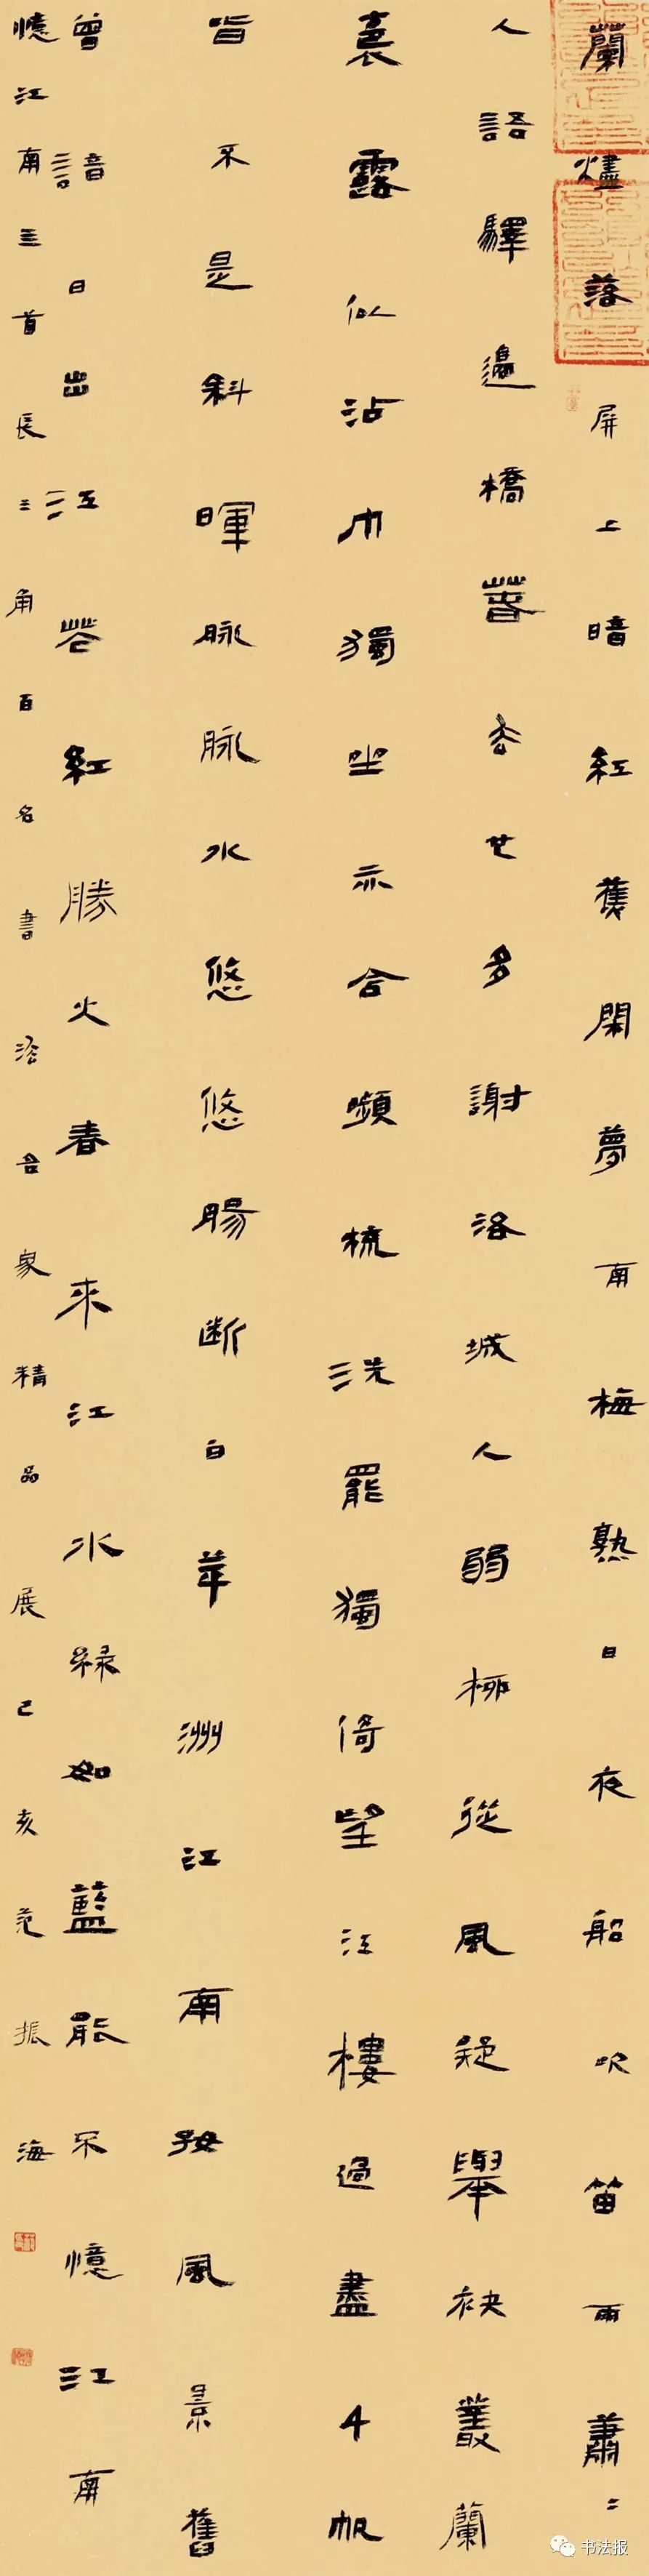 蘭燼落屏上暗紅蕉閑夢南梅熟日夜船吹笛雨蕭〻
人語驛邊橋春去也多謝洛城人弱柳從風疑舉袂叢蘭
裛露似沾巾獨坐亦含嚬梳洗罷獨倚望江樓過盡千帆
皆不是斜暉脉脉水悠悠腸断白苹洲江南好風景舊
曾諳日出江花紅勝火春來江水緑如藍能不憶江南
憶江南三首長三角百名書法名家精品展己亥范振海
书法报